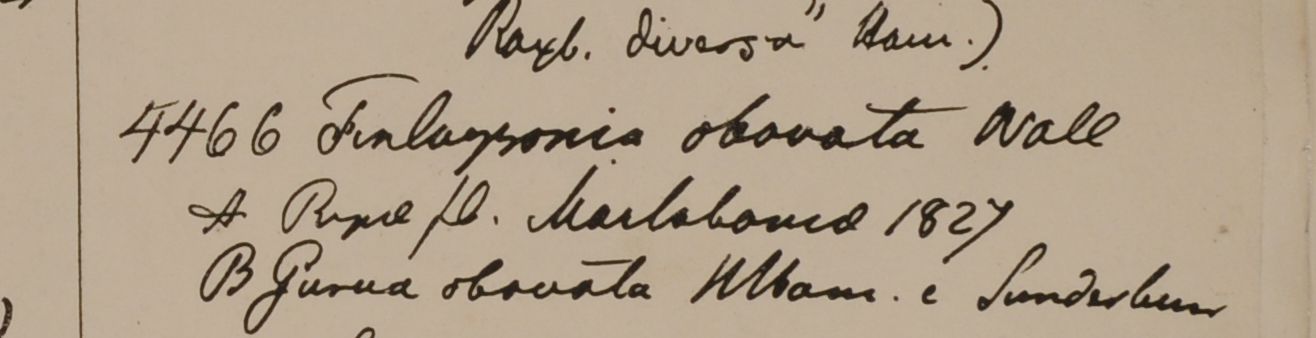 Roxb. diversa" Ham.)
4466 Finlaysonia obovata Wall
A Ripæ fl. Martabaniæ 1827
B Gurua obovata HBham. e Sunderbun